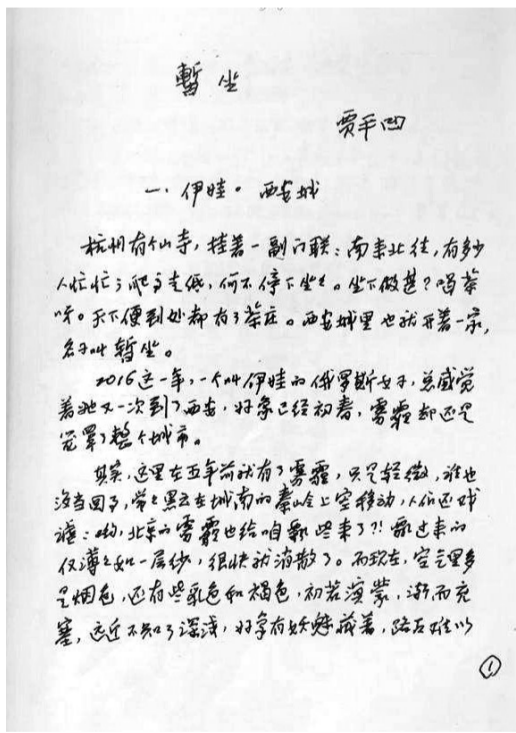 暂坐
贾平凹
一、伊娃·西安城
杭州有个山寺，挂着一副门联：南来北往，有多少
人忙忙 爬高走低，何不停下坐坐。坐下做甚？喝茶
呀。天下便到处都有了茶庄。西安城里也就开着一家，
名字叫暂坐。
2016这一年，一个叫伊娃的俄罗斯女子，总感觉
着她又一次到了西安，好象已经初春，雾霾却还是
笼罩了整个城市。
其实，这里在五年前就有了雾霾，只是轻微，谁也
没当回事，常常黑云在城南的秦岭上空移动，人们还戏
谑：哟，北京的雾霾也给咱 些来了？！ 过来的
仅薄薄如一层纱，很快就消散了。而现在，空气里多
是烟色，还有些乳色和褐色，初若溟濛，渐而充
塞，远近不知了深浅，好象有妖魅藏着，路反难以
1